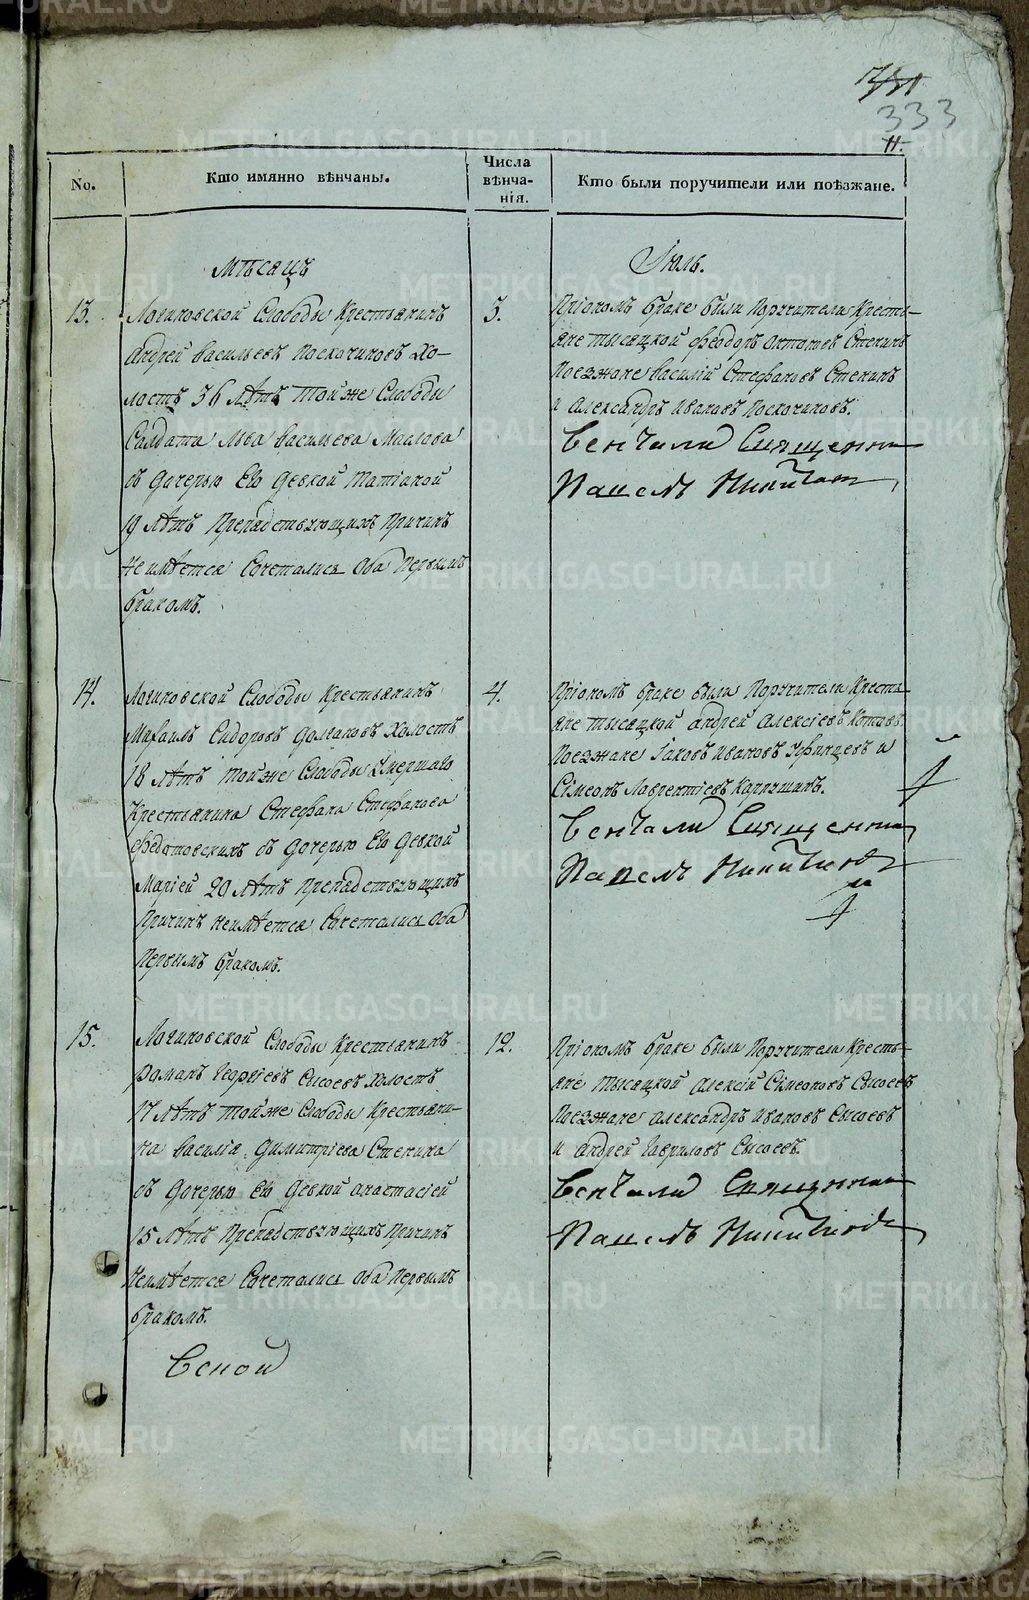 333
11.
No.
Кто имянно вѣнчаны.
Числа
вѣнча-
нія.
Кто были поручители или поѣзжане.
Мѣсяцъ
Іюль.
13.
Логиновской Слободы Крестьянинъ
Андрей Васильевъ Поскочиновъ Хо-
лостъ 36 лѣтъ той же Слободы
Солдата Льва Васильева Маслова
съ дочерью Ево девкой Татіаной
19 лѣтъ Препядствующихъ Причинъ
неимѣется Сочетались Оба Первымъ
бракомъ.
3.
Пріономъ браке были Поручители Кресть-
яне тысяцкой Феодоръ Стенинъ
Поезжане Василій Стефановъ Стенинъ
и Александръ Ивановъ Поскочиновъ.
Венчали Священни
Павелъ
14.
Логиновской Слободы Крестьянинъ
Михаилъ Сидоровъ Долгановъ Холостъ
18 лѣтъ той же Слободы Умершаго
Крестьянина Стефана Стефанова
Федотовскихъ съ дочерью Ево девкой
Маріей 20 лѣтъ Препядствующихъ
Причинъ неимѣется Сочетались Оба
Первымъ бракомъ.
4.
Пріономъ браке были Поручители Кресть-
яне тысяцкой Андрей Алексіевъ Котовъ
Поезжане Іаковъ Ивановъ Уфинцевъ и
Сімеонъ Лаврентіевъ
Венчали Священни
Павелъ
15.
Логиновской Слободы Крестьянинъ
Романъ Георгіевъ Сысоевъ Холостъ
17 лѣтъ той же Слободы Крестьяни-
на Василія Димитріева Стенина
съ дочерью Ево девкой Анастасіей
15 лѣтъ Препядствующихъ Причинъ
Неимѣется Сочетались Оба Первымъ
бракомъ.
12.
Пріономъ браке были Поручители Кресть-
яне тысяцкой Алексій Сімеоновъ Сысоевъ
Поезжане Александръ Ивановъ Сысоевъ
и Андрей Гавриловъ Сысоевъ.
Венчали
Павелъ
METRIKI.GASO-URAL.RU